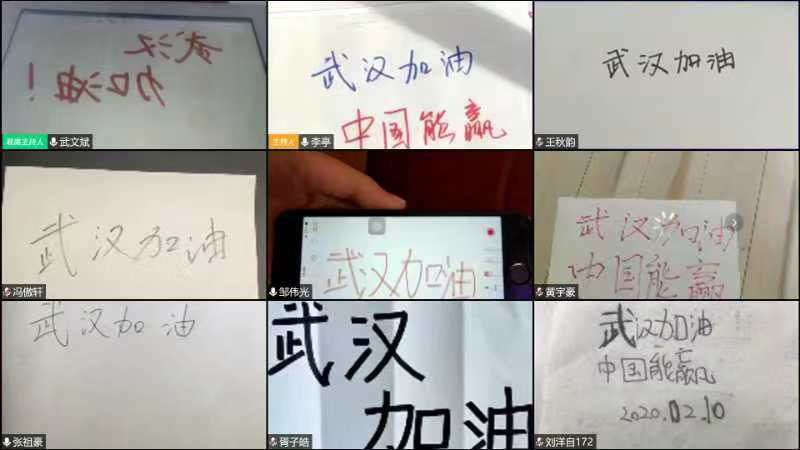 武汉
加油!
联席主持人 武文斌
武汉加油
中国能赢
主持人 李亭
武汉加油
王秋韵
武汉加油
冯傲轩
武汉加油
邹伟光
武汉加油
中国能赢
黄宇豪
武汉加油
张祖豪
武汉
加油
胥子皓
武汉加油
中国能赢
2020.02.10
刘洋自172